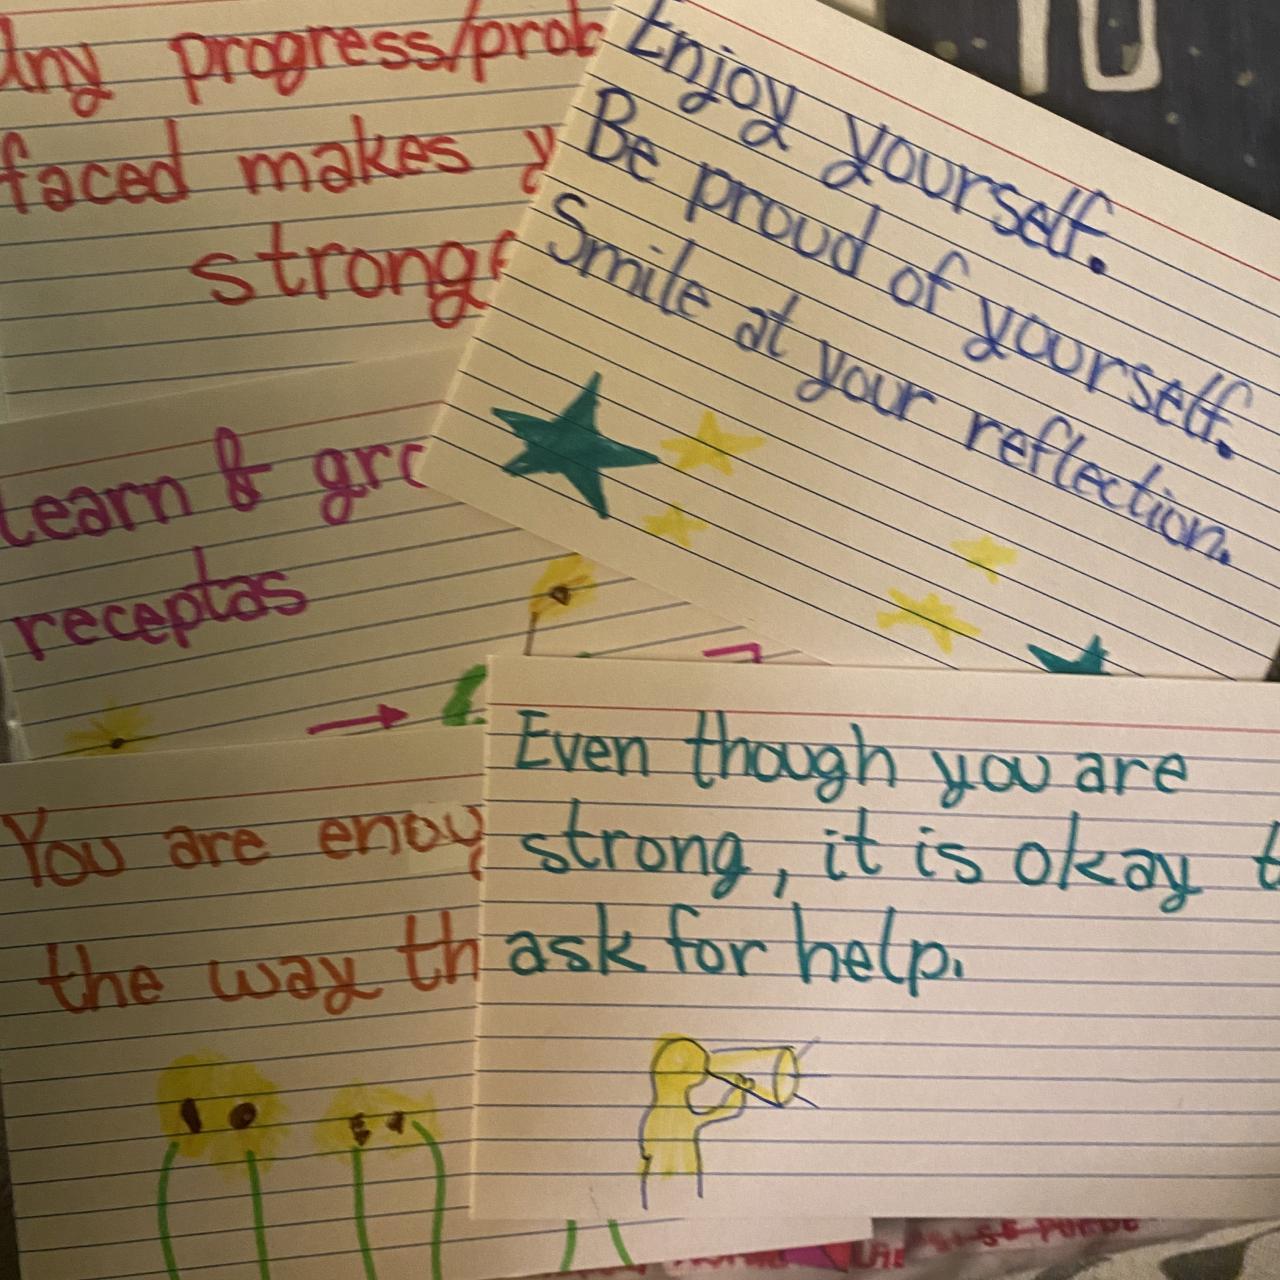 Any progress/prob
faced makes y
strong
Enjoy yourself.
Be proud of yourself.
Smile at your reflection.
Learn & gro
receptas
You are enoug
the way th
Even though you are
strong, it is okay t
ask for help.